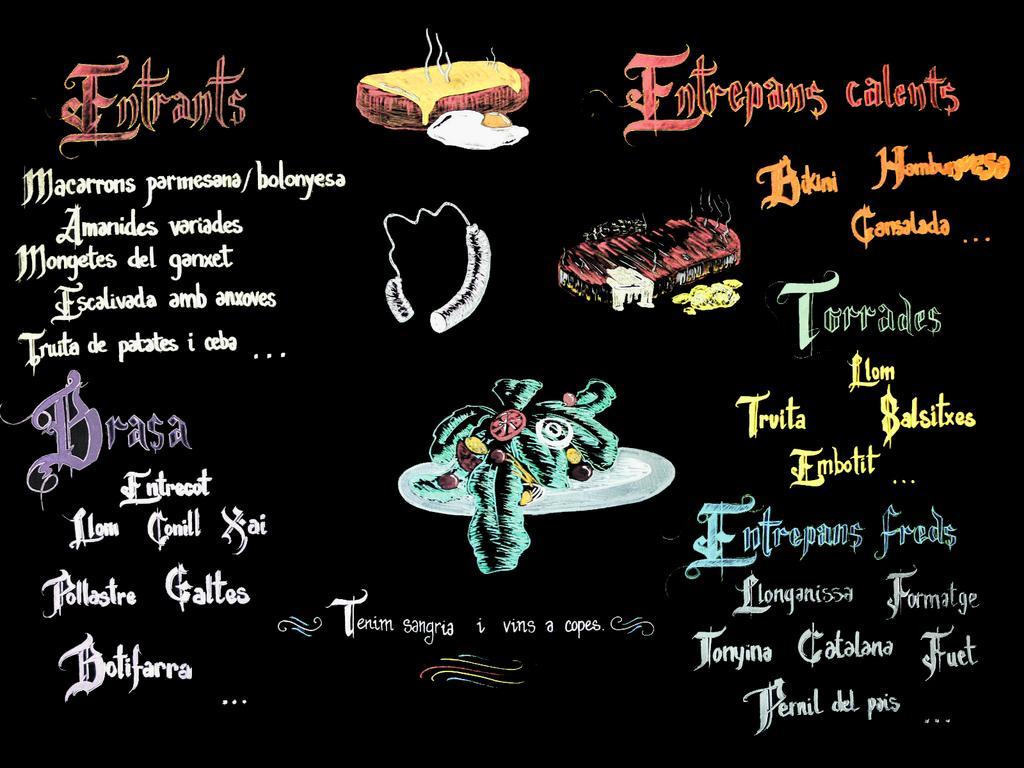 Entrants
Macarrons parmesana/bolonyesa
Amanides variades
Mongetes del ganxet
Escalivada amb anxoves
Truita de patates i ceba ...
Brasa
Entrecot
Llom Conill Xai
Pollastre Galtes
Botifarra
...
Tenim sangria i vins a copes.
Entrepans calents
Bikini Hamburguesa
Cansalada ...
Torrades
Llom
Truita Balsitxes
Embotit ...
Entrepans freds
Llonganissa Formatge
Tonyina Catalana Fuet
Pernil del pais ...